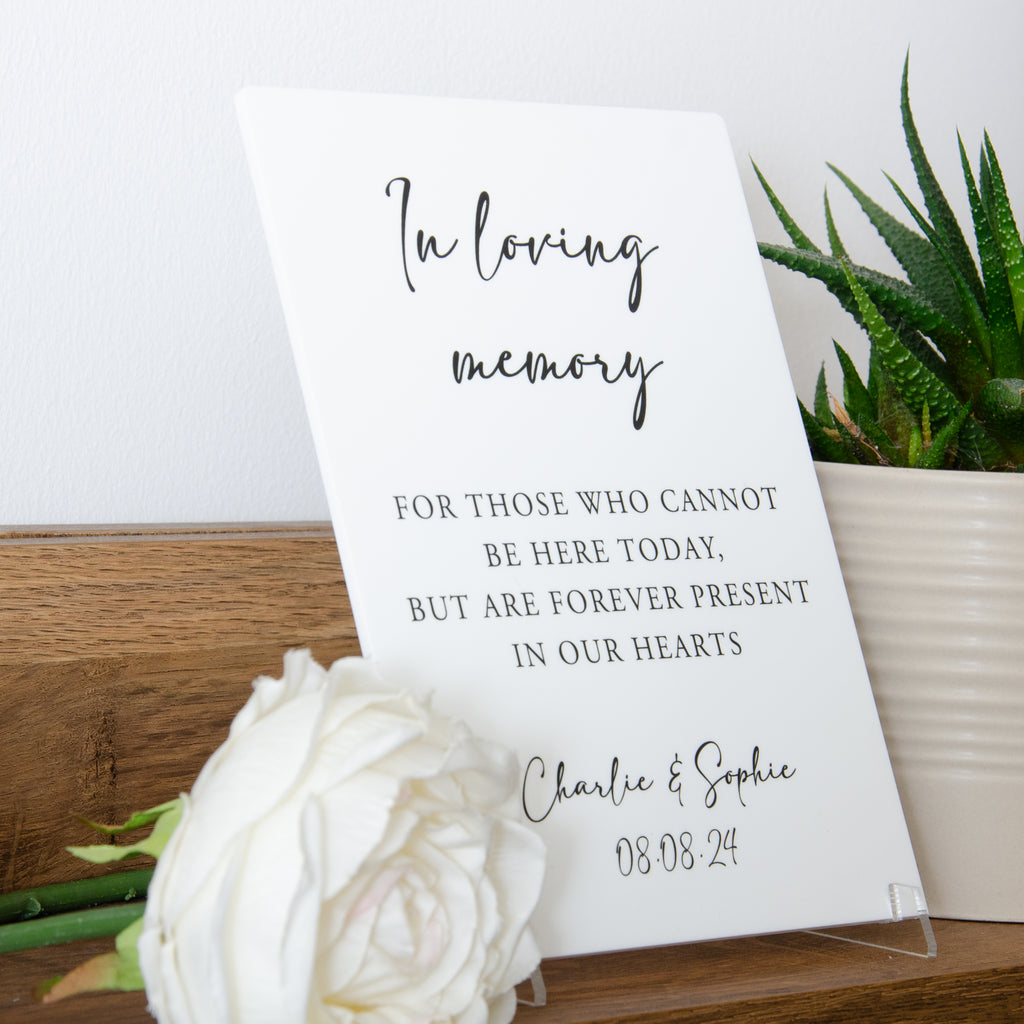 In loving
memory
FOR THOSE WHO CANNOT
BE HERE TODAY,
BUT ARE FOREVER PRESENT
IN OUR HEARTS
Charlie & Sophie
08.08.24